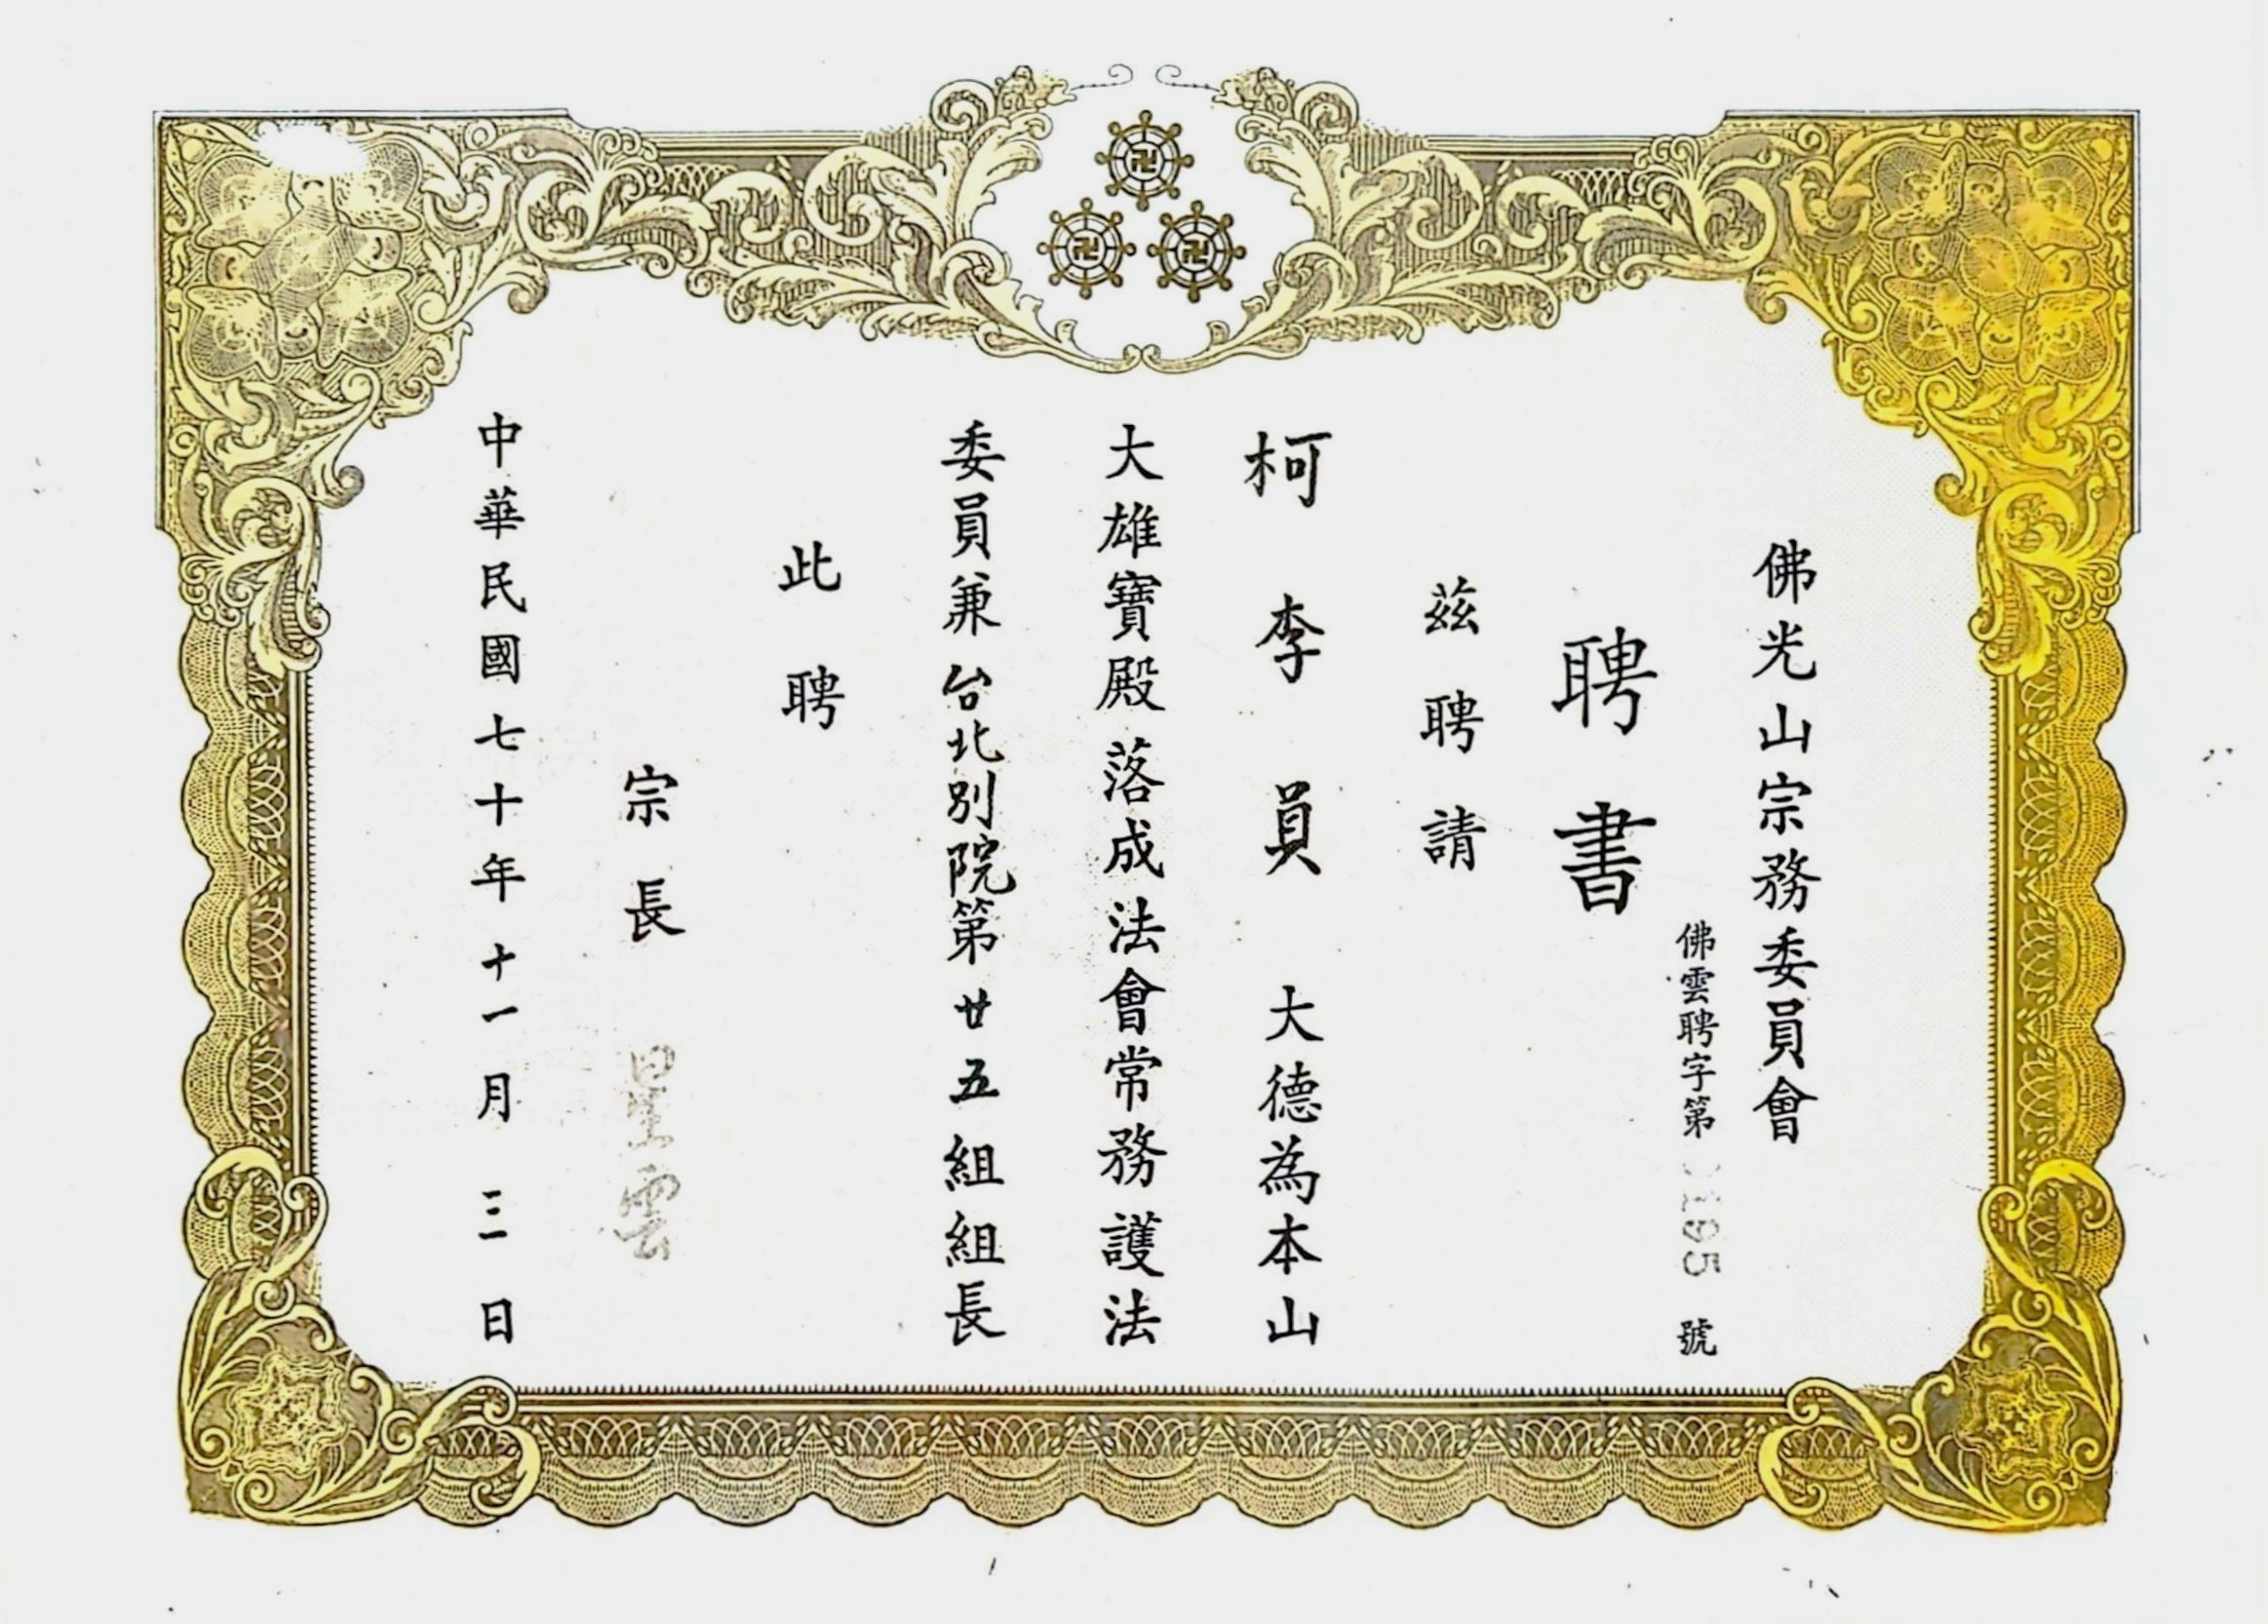 佛光山宗務委員會
佛雲聘字第 1195 號
聘書
茲聘請
柯李員 大德為本山
大雄寶殿落成法會常務護法
委員兼台北別院第廿五組組長
此聘
宗長 星雲
中華民國七十年十一月三日